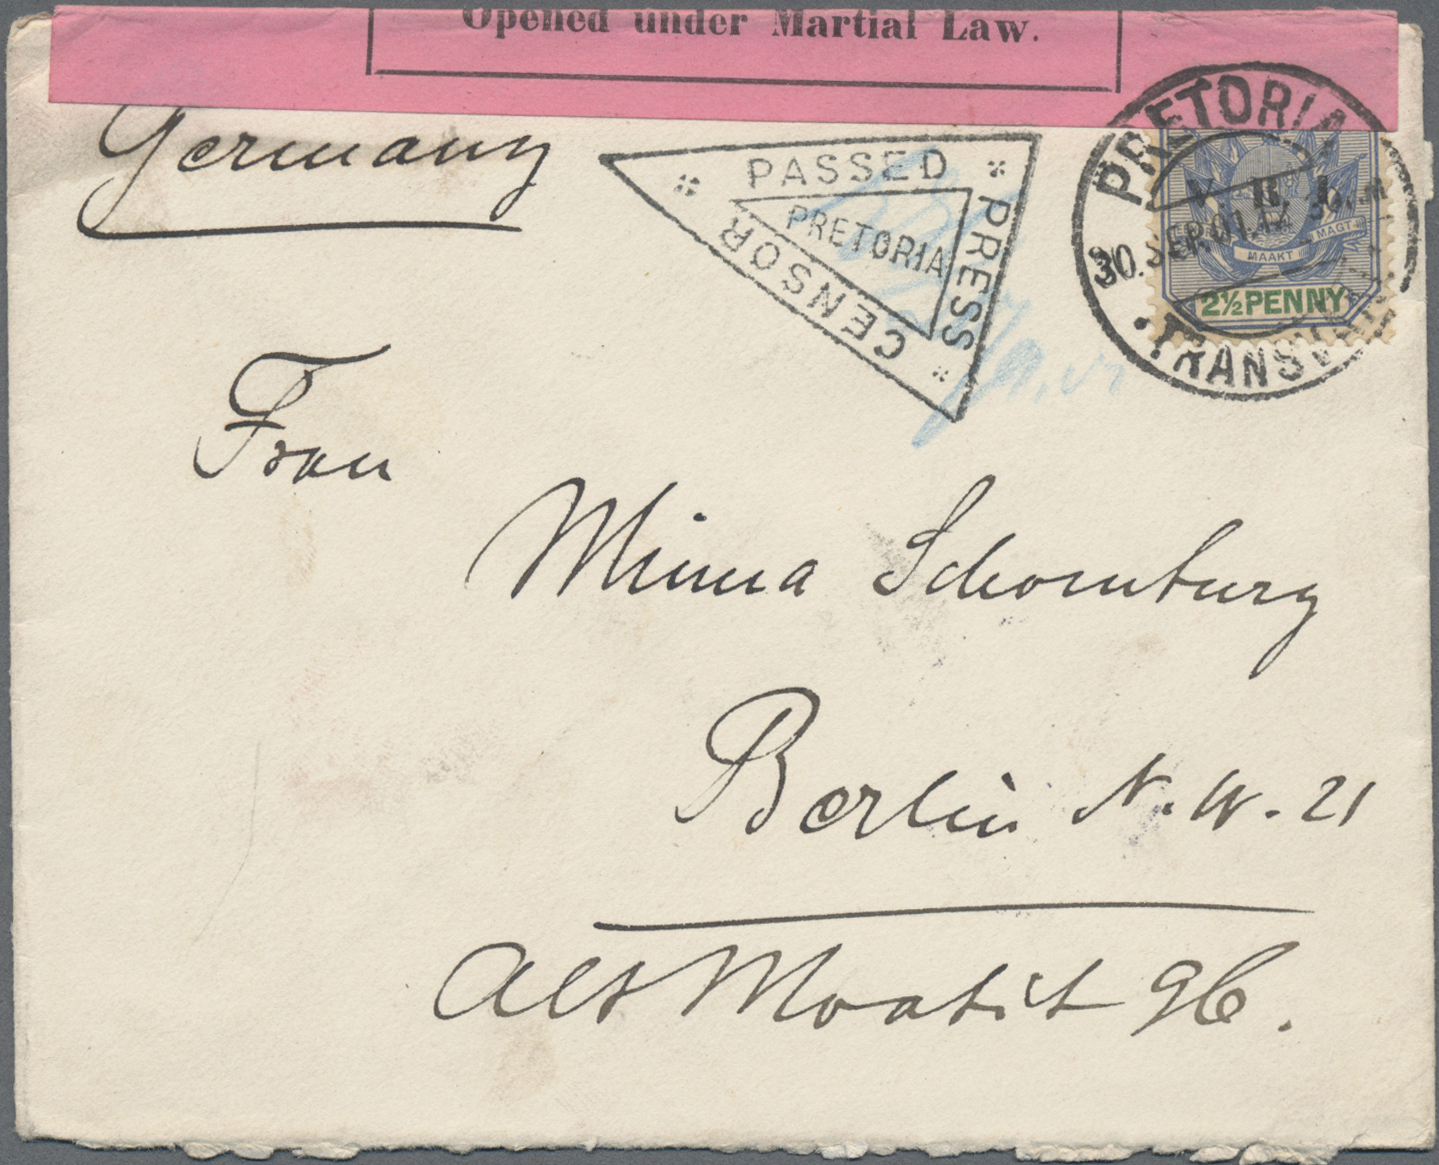 Opened under Martial Law.
Germany
PASSED
PRESS
CENSOR
PRETORIA
PRETORIA
30. SEP. 01.
TRANSVAAL
V. R. I.
MAAKT MAGT
2½PENNY
Frau
Minna Schomburg
Berlin N.W. 21
Alt Moabit 96.